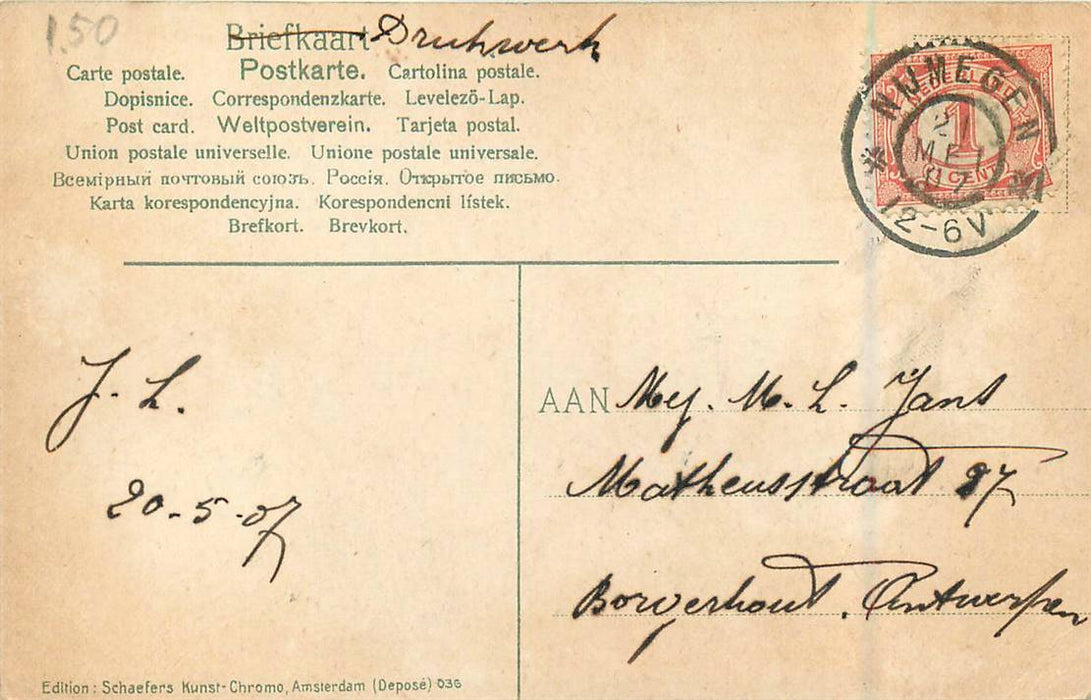 150
Briefkaart Drukwerk
Carte postale. Postkarte. Cartolina postale.
Dopisnice. Correspondenzkarte. Levelező-Lap.
Post card. Weltpostverein. Tarjeta postal.
Union postale universelle. Unione postale universale.
Всемірный почтовый союзъ. Россія. Открытое письмо.
Karta korespondencyjna. Korespondencni lístek.
Brefkort. Brevkort.
NIJMEGEN
21
MEI
07
12-6V
1
CENT
J. L.
20-5-07
AAN Mej. M. L. Jans
Matheusstraat 27
Borgerhout. Antwerpen
Edition: Schaefers Kunst-Chromo, Amsterdam (Deposé) 036